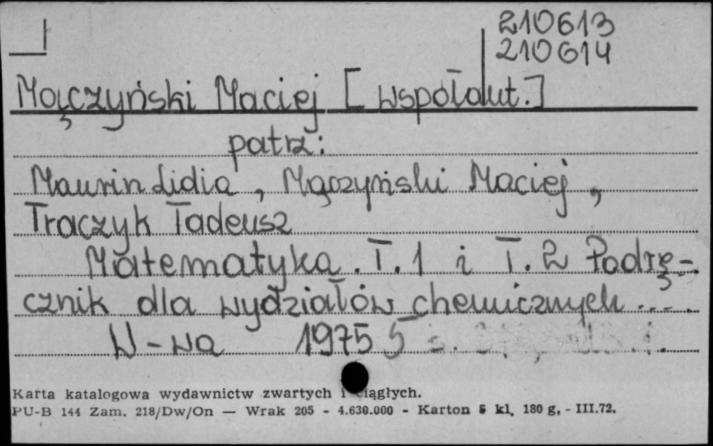 210613
210614
Mączyński Maciej [współaut.]
patrz:
Maurin Lidia, Mączyński Maciej,
Traczyk Tadeusz
Matematyka. T. 1 i T. 2 Podrę-
cznik dla wydziałów chemicznych....
W-wa 1975
Karta katalogowa wydawnictw zwartych i ciągłych.
PU-B 144 Zam. 218/Dw/On — Wrak 205 - 4.630.000 - Karton 5 kl. 180 g, - III.72.